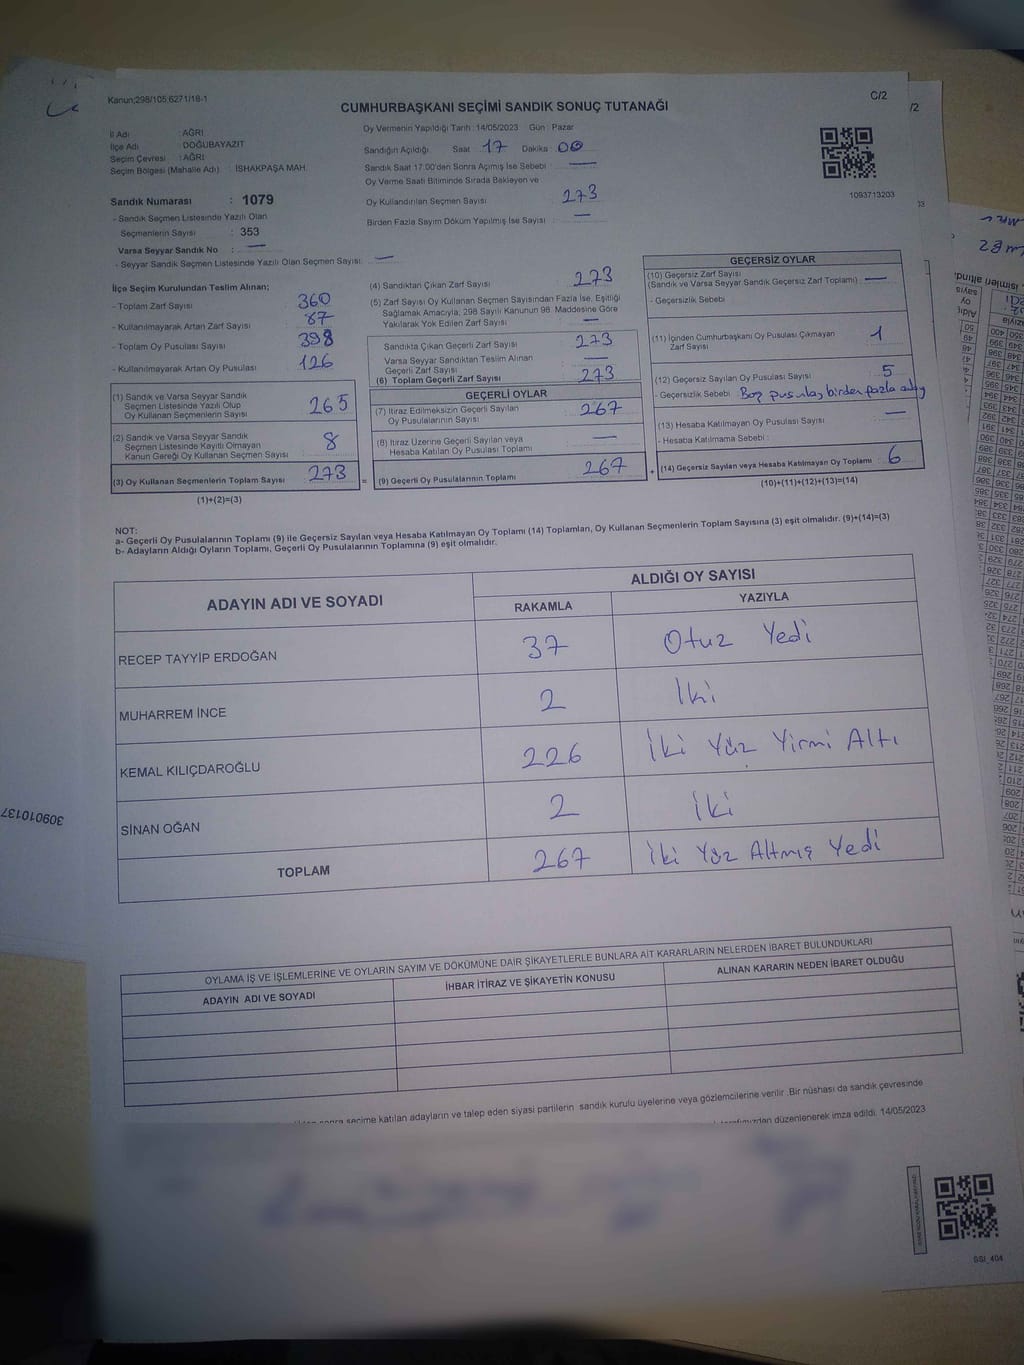 Kanun;298/105;6271/18-1
C/2
/2
CUMHURBAŞKANI SEÇİMİ SANDIK SONUÇ TUTANAĞI
İl Adı : AĞRI
İlçe Adı : DOĞUBAYAZIT
Seçim Çevresi : AĞRI
Seçim Bölgesi (Mahalle Adı) : İSHAKPAŞA MAH.
Oy Vermenin Yapıldığı Tarih : 14/05/2023 Gün : Pazar
Sandığın Açıldığı Saat 17 Dakika 00
Sandık Saat 17:00'den Sonra Açımış İse Sebebi : —
Oy Verme Saati Bitiminde Sırada Bekleyen ve
Oy Kullandırılan Seçmen Sayısı : 273
Birden Fazla Sayım Döküm Yapılmış İse Sayısı : —
1093713203
Sandık Numarası : 1079
- Sandık Seçmen Listesinde Yazılı Olan
Seçmenlerin Sayısı : 353
Varsa Seyyar Sandık No : —
- Seyyar Sandık Seçmen Listesinde Yazılı Olan Seçmen Sayısı: —
İlçe Seçim Kurulundan Teslim Alınan;
- Toplam Zarf Sayısı : 360
- Kullanılmayarak Artan Zarf Sayısı : 87
- Toplam Oy Pusulası Sayısı : 398
- Kullanılmayarak Artan Oy Pusulası : 126
(1) Sandık ve Varsa Seyyar Sandık
Seçmen Listesinde Yazılı Olup
Oy Kullanan Seçmenlerin Sayısı : 265
(2) Sandık ve Varsa Seyyar Sandık
Seçmen Listesinde Kayıtlı Olmayan
Kanun Gereği Oy Kullanan Seçmen Sayısı : 8
(3) Oy Kullanan Seçmenlerin Toplam Sayısı : 273
(1)+(2)=(3)
(4) Sandıktan Çıkan Zarf Sayısı : 273
(5) Zarf Sayısı Oy Kullanan Seçmen Sayısından Fazla İse, Eşitliği
Sağlamak Amacıyla; 298 Sayılı Kanunun 98. Maddesine Göre
Yakılarak Yok Edilen Zarf Sayısı : —
Sandıkta Çıkan Geçerli Zarf Sayısı : 273
Varsa Seyyar Sandıktan Teslim Alınan
Geçerli Zarf Sayısı : —
(6) Toplam Geçerli Zarf Sayısı : 273
GEÇERLİ OYLAR
(7) İtiraz Edilmeksizin Geçerli Sayılan
Oy Pusulalarının Sayısı : 267
(8) İtiraz Üzerine Geçerli Sayılan veya
Hesaba Katılan Oy Pusulası Toplamı : —
= (9) Geçerli Oy Pusulalarının Toplamı : 267 +
GEÇERSİZ OYLAR
(10) Geçersiz Zarf Sayısı
(Sandık ve Varsa Seyyar Sandık Geçersiz Zarf Toplamı) : —
- Geçersizlik Sebebi
(11) İçinden Cumhurbaşkanı Oy Pusulası Çıkmayan
Zarf Sayısı : 1
(12) Geçersiz Sayılan Oy Pusulası Sayısı : 5
- Geçersizlik Sebebi : Boş pusula, birden fazla
(13) Hesaba Katılmayan Oy Pusulası Sayısı : —
- Hesaba Katılmama Sebebi :
(14) Geçersiz Sayılan veya Hesaba Katılmayan Oy Toplamı : 6
(10)+(11)+(12)+(13)=(14)
NOT:
a- Geçerli Oy Pusulalarının Toplamı (9) ile Geçersiz Sayılan veya Hesaba Katılmayan Oy Toplamı (14) Toplamları, Oy Kullanan Seçmenlerin Toplam Sayısına (3) eşit olmalıdır. (9)+(14)=(3)
b- Adayların Aldığı Oyların Toplamı, Geçerli Oy Pusulalarının Toplamına (9) eşit olmalıdır.
ADAYIN ADI VE SOYADI
ALDIĞI OY SAYISI
RAKAMLA YAZIYLA
RECEP TAYYİP ERDOĞAN 37 Otuz Yedi
MUHARREM İNCE 2 İki
KEMAL KILIÇDAROĞLU 226 İki Yüz Yirmi Altı
SİNAN OĞAN 2 İki
TOPLAM 267 İki Yüz Altmış Yedi
OYLAMA İŞ VE İŞLEMLERİNE VE OYLARIN SAYIM VE DÖKÜMÜNE DAİR ŞİKAYETLERLE BUNLARA AİT KARARLARIN NELERDEN İBARET BULUNDUKLARI
ADAYIN ADI VE SOYADI
İHBAR İTİRAZ VE ŞİKAYETİN KONUSU
ALINAN KARARIN NEDEN İBARET OLDUĞU
sonra seçime katılan adayların ve talep eden siyasi partilerin sandık kurulu üyelerine veya gözlemcilerine verilir .Bir nüshası da sandık çevresinde
düzenlenerek imza edildi. 14/05/2023
309010137
SSI_404